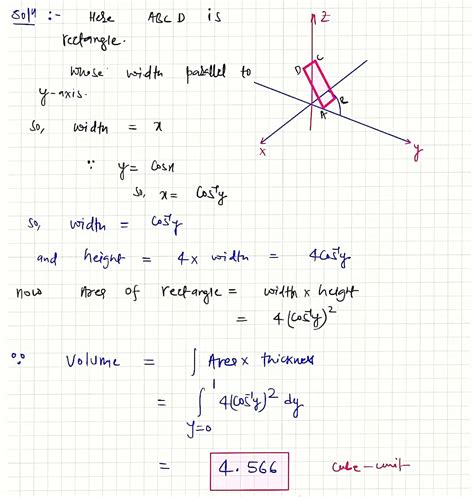 Soln :- Here ABCD is
rectangle.
whose width parallel to
y-axis.
so, width = x
∵ y = cosx
so, x = cos⁻¹y
so, width = cos⁻¹y
and height = 4 x width = 4cos⁻¹y
now Area of rectangle = width x height
= 4(cos⁻¹y)²
∵ Volume = ∫ Area x thickness
= ∫ y=0 1 4(cos⁻¹y)² dy
= 4.566 cube-unit
Z
C
D
A
B
x
y